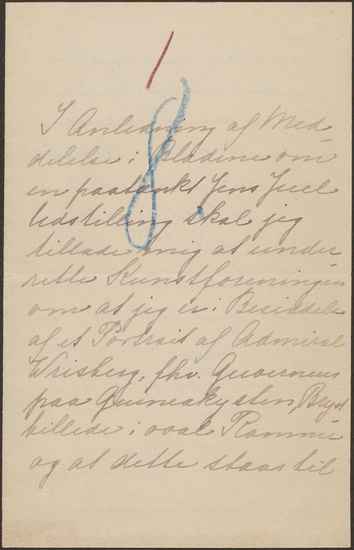 1
8.
I Anledning af Med
delelse i Bladene om
en paatænkt Jens Juel
Udstilling skal jeg
tillade mig at under
rette Kunstforeningen
om at jeg er i Besiddelse
af et Portrait af Admiral
Wrisberg, fhv. Guverneur
paa Guineakysten, Bryst
billede i oval Ramme
og at dette staar til